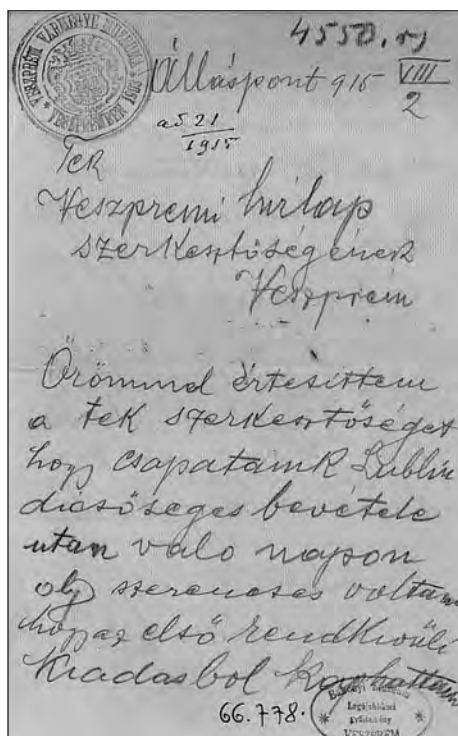 4550. rj
VESZPRÉM VÁRMEGYE MÚZEUMA * VESZPRÉMBEN 1903
Álláspont 915 VIII/2
a5 21/1915
Tek
Veszpremi hirlap
szerkesztőségének
Veszprém
Örömmel értesittem
a tek szerkesztőséget
hogy csapataink Lublin
dicsőséges bevétele
utan valo napon
oly szerencses voltam
hogy az első rendkivüli
kiadasbol kaphattam
66.778.
Legújabbkori
gyűjtemény
VESZPRÉM